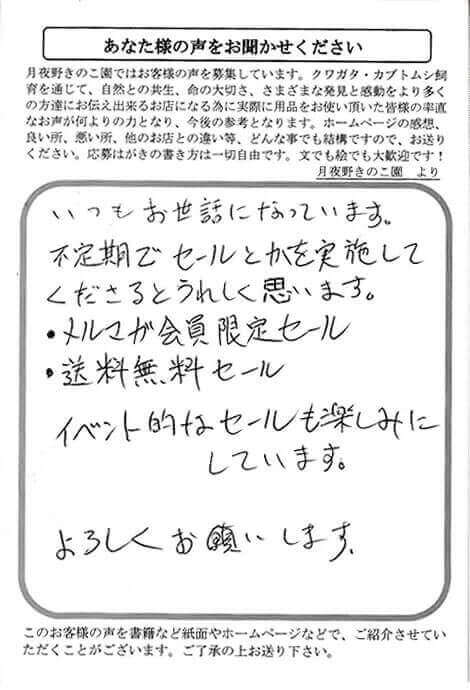 あなた様の声をお聞かせください
月夜野きのこ園ではお客様の声を募集しています。クワガタ・カブトムシ飼
育を通じて、自然との共生、命の大切さ、さまざまな発見と感動をより多く
の方達にお伝え出来るお店になる為に実際に用品をお使い頂いた皆様の率直
なお声が何よりの力となり、今後の参考となります。ホームページの感想、
良い所、悪い所、他のお店との違い等、どんな事でも結構ですので、お送り
ください。応募はがきの書き方は一切自由です。文でも絵でも大歓迎です!
月夜野きのこ園 より
いつもお世話になっています。
不定期でセールとかを実施して
くださるとうれしく思います。
・メルマガ会員限定セール
・送料無料セール
イベント的なセールも楽しみに
しています。
よろしくお願いします。
このお客様の声を書籍など紙面やホームページなどで、ご紹介させてい
ただくことがございます。ご了承の上お送り下さい。